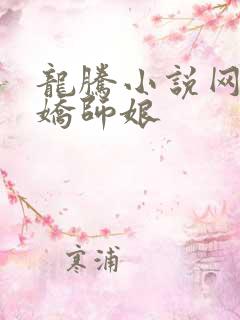 龍騰小説网
嬌師娘
寒浦